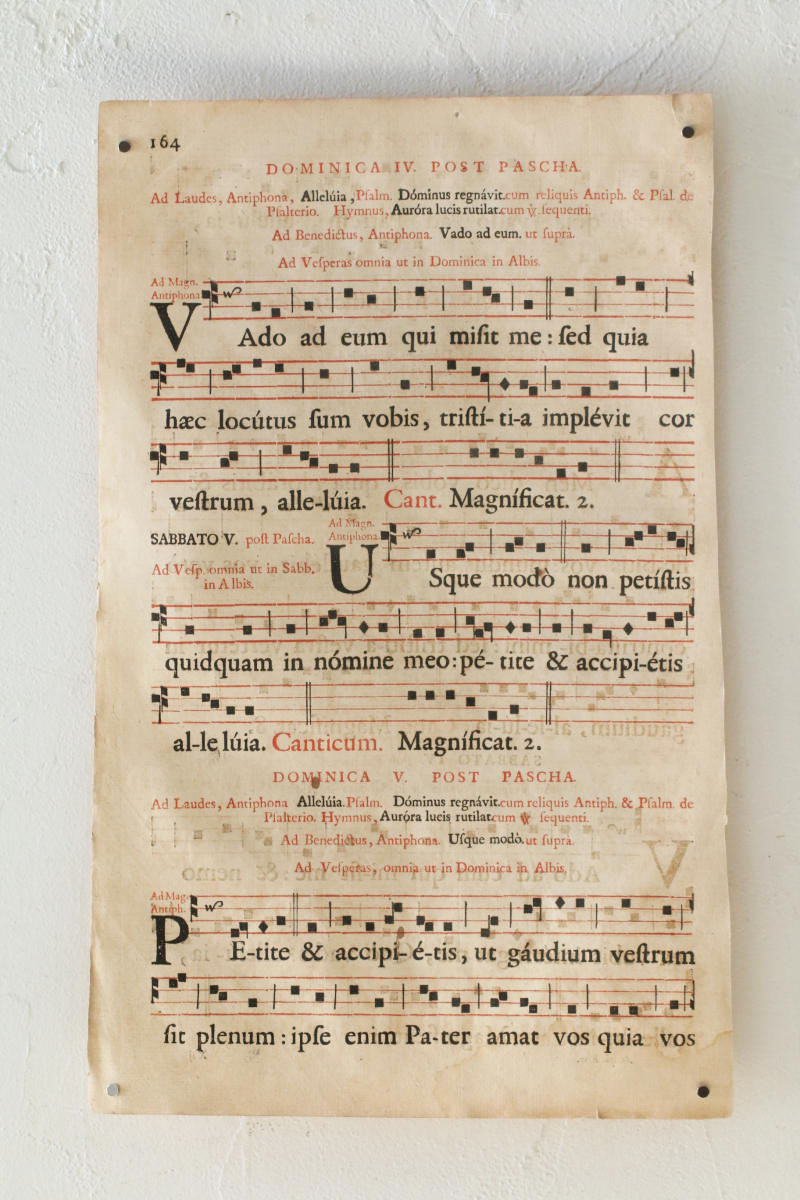 164
DOMINICA IV. POST PASCHA.
Ad Laudes, Antiphona, Allelúia, Pſalm. Dóminus regnávit. cum reliquis Antiph. & Pſal. de
Pſalterio. Hymnus, Auróra lucis rutilat. cum ℣. ſequenti.
Ad Benedictus, Antiphona. Vado ad eum. ut ſuprà.
Ad Veſperas omnia ut in Dominica in Albis.
Ad Magn.
Antiphona
VAdo ad eum qui miſit me : ſed quia
hæc locútus ſum vobis, triſtí-ti-a implévit cor
veſtrum, alle-lúia. Cant. Magníficat. 2.
Ad Magn.
SABBATO V. poſt Paſcha. Antiphona.
Ad Veſp. omnia ut in Sabb.
in Albis.
USque modò non petíſtis
quidquam in nómine meo : pé-tite & accipi-étis
al-le lúia. Canticum. Magníficat. 2.
DOMINICA V. POST PASCHA.
Ad Laudes, Antiphona Allelúia. Pſalm. Dóminus regnávit. cum reliquis Antiph. & Pſalm. de
Pſalterio. Hymnus, Auróra lucis rutilat. cum ℣ ſequenti.
Ad Benedictus, Antiphona. Uſque modò. ut ſupra.
Ad Veſperas, omnia ut in Dominica in Albis.
Ad Mag.
Antiph.
PE-tite & accipi-é-tis, ut gáudium veſtrum
ſit plenum : ipſe enim Pa-ter amat vos quia vos